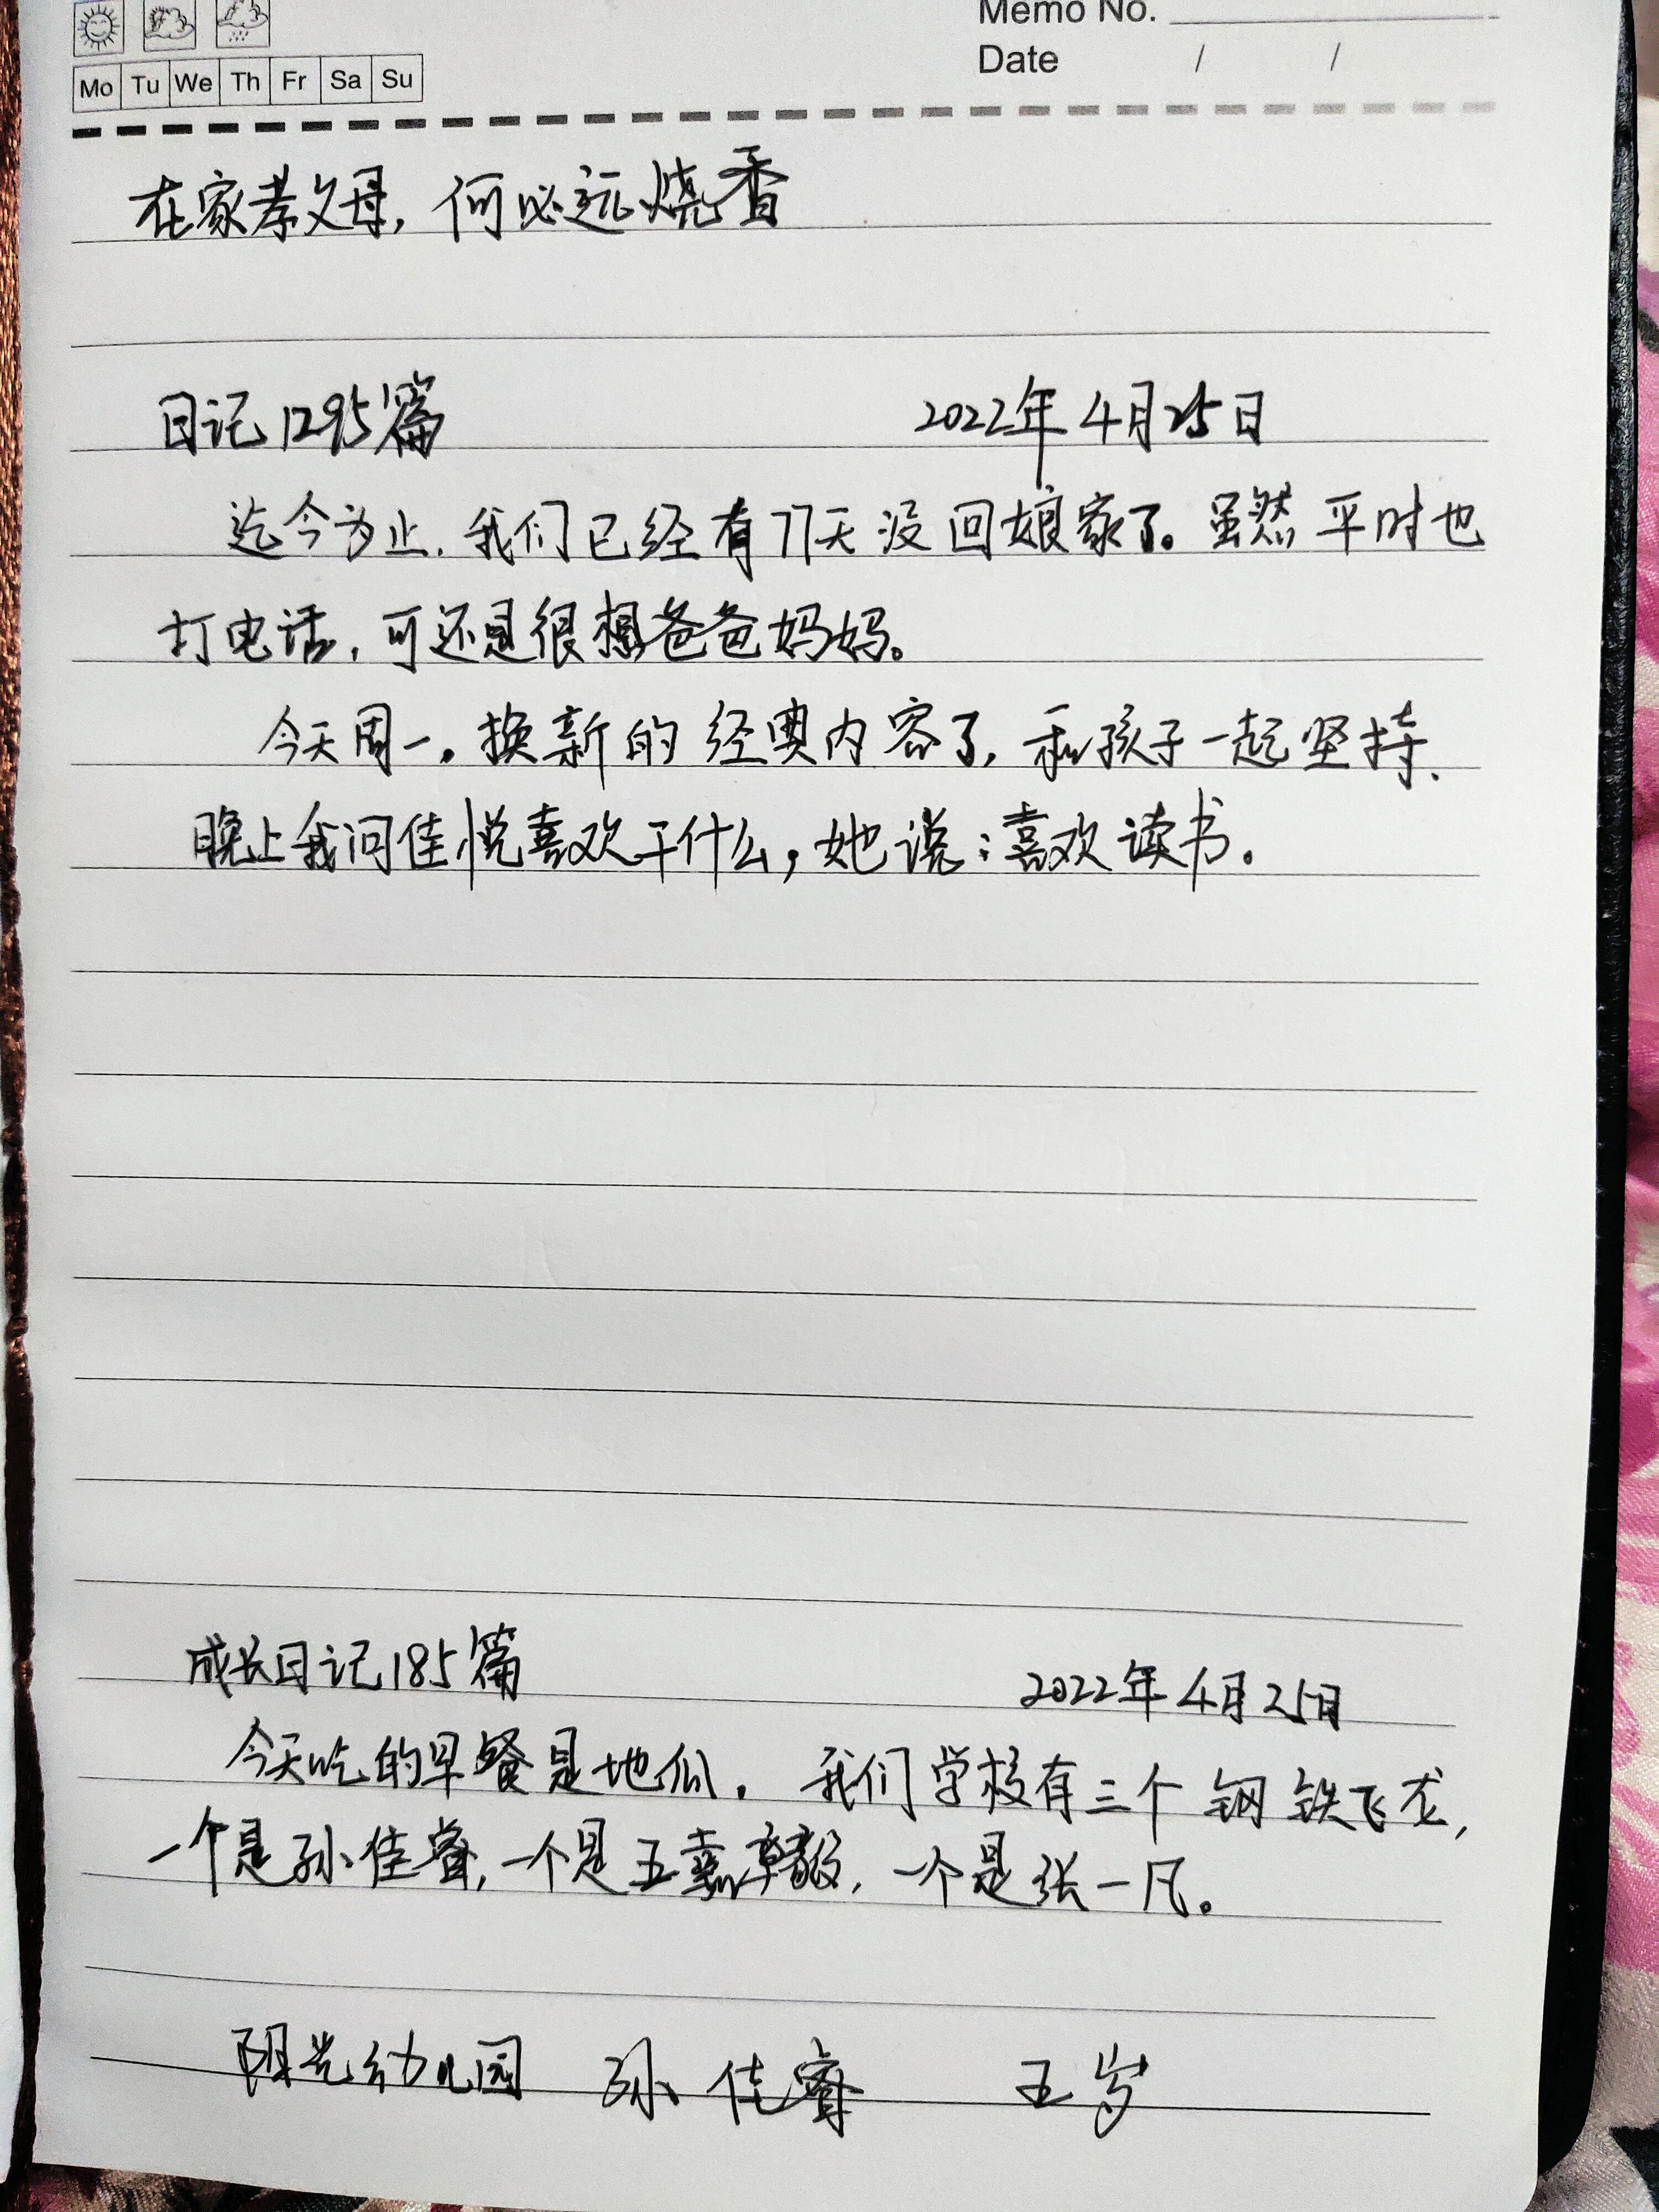 Memo No.
Mo Tu We Th Fr Sa Su
Date / /
在家孝父母, 何必远烧香
日记1295篇 2022年4月25日
迄今为止,我们已经有77天没回娘家了。虽然平时也
打电话,可还是很想爸爸妈妈。
今天周一。换新的经典内容了,和孩子一起坚持.
晚上我问佳悦喜欢干什么,她说:喜欢读书。
成长日记185篇 2022年4月25日
今天吃的早餐是地瓜. 我们学校有三个钢铁飞龙,
一个是孙佳睿,一个是王嘉毅,一个是张一凡。
阳光幼儿园 孙佳睿 五岁